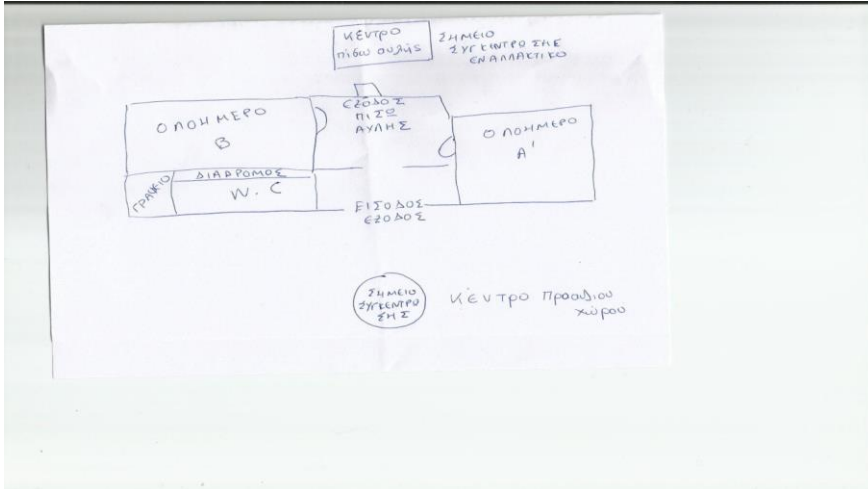 ΚΕΝΤΡΟ
πίσω αυλής
ΣΗΜΕΙΟ
ΣΥΓΚΕΝΤΡΩΣΗΣ
ΕΝΑΛΛΑΚΤΙΚΟ
ΕΞΟΔΟΣ
ΠΙΣΩ
ΑΥΛΗΣ
ΟΛΟΗΜΕΡΟ
Β
ΟΛΟΗΜΕΡΟ
Α'
ΓΡΑΦΕΙΟ
ΔΙΑΔΡΟΜΟΣ
W.C
ΕΙΣΟΔΟΣ
ΕΞΟΔΟΣ
ΣΗΜΕΙΟ
ΣΥΓΚΕΝΤΡΩ
ΣΗΣ
Κέντρο προαυλιου
χώρου